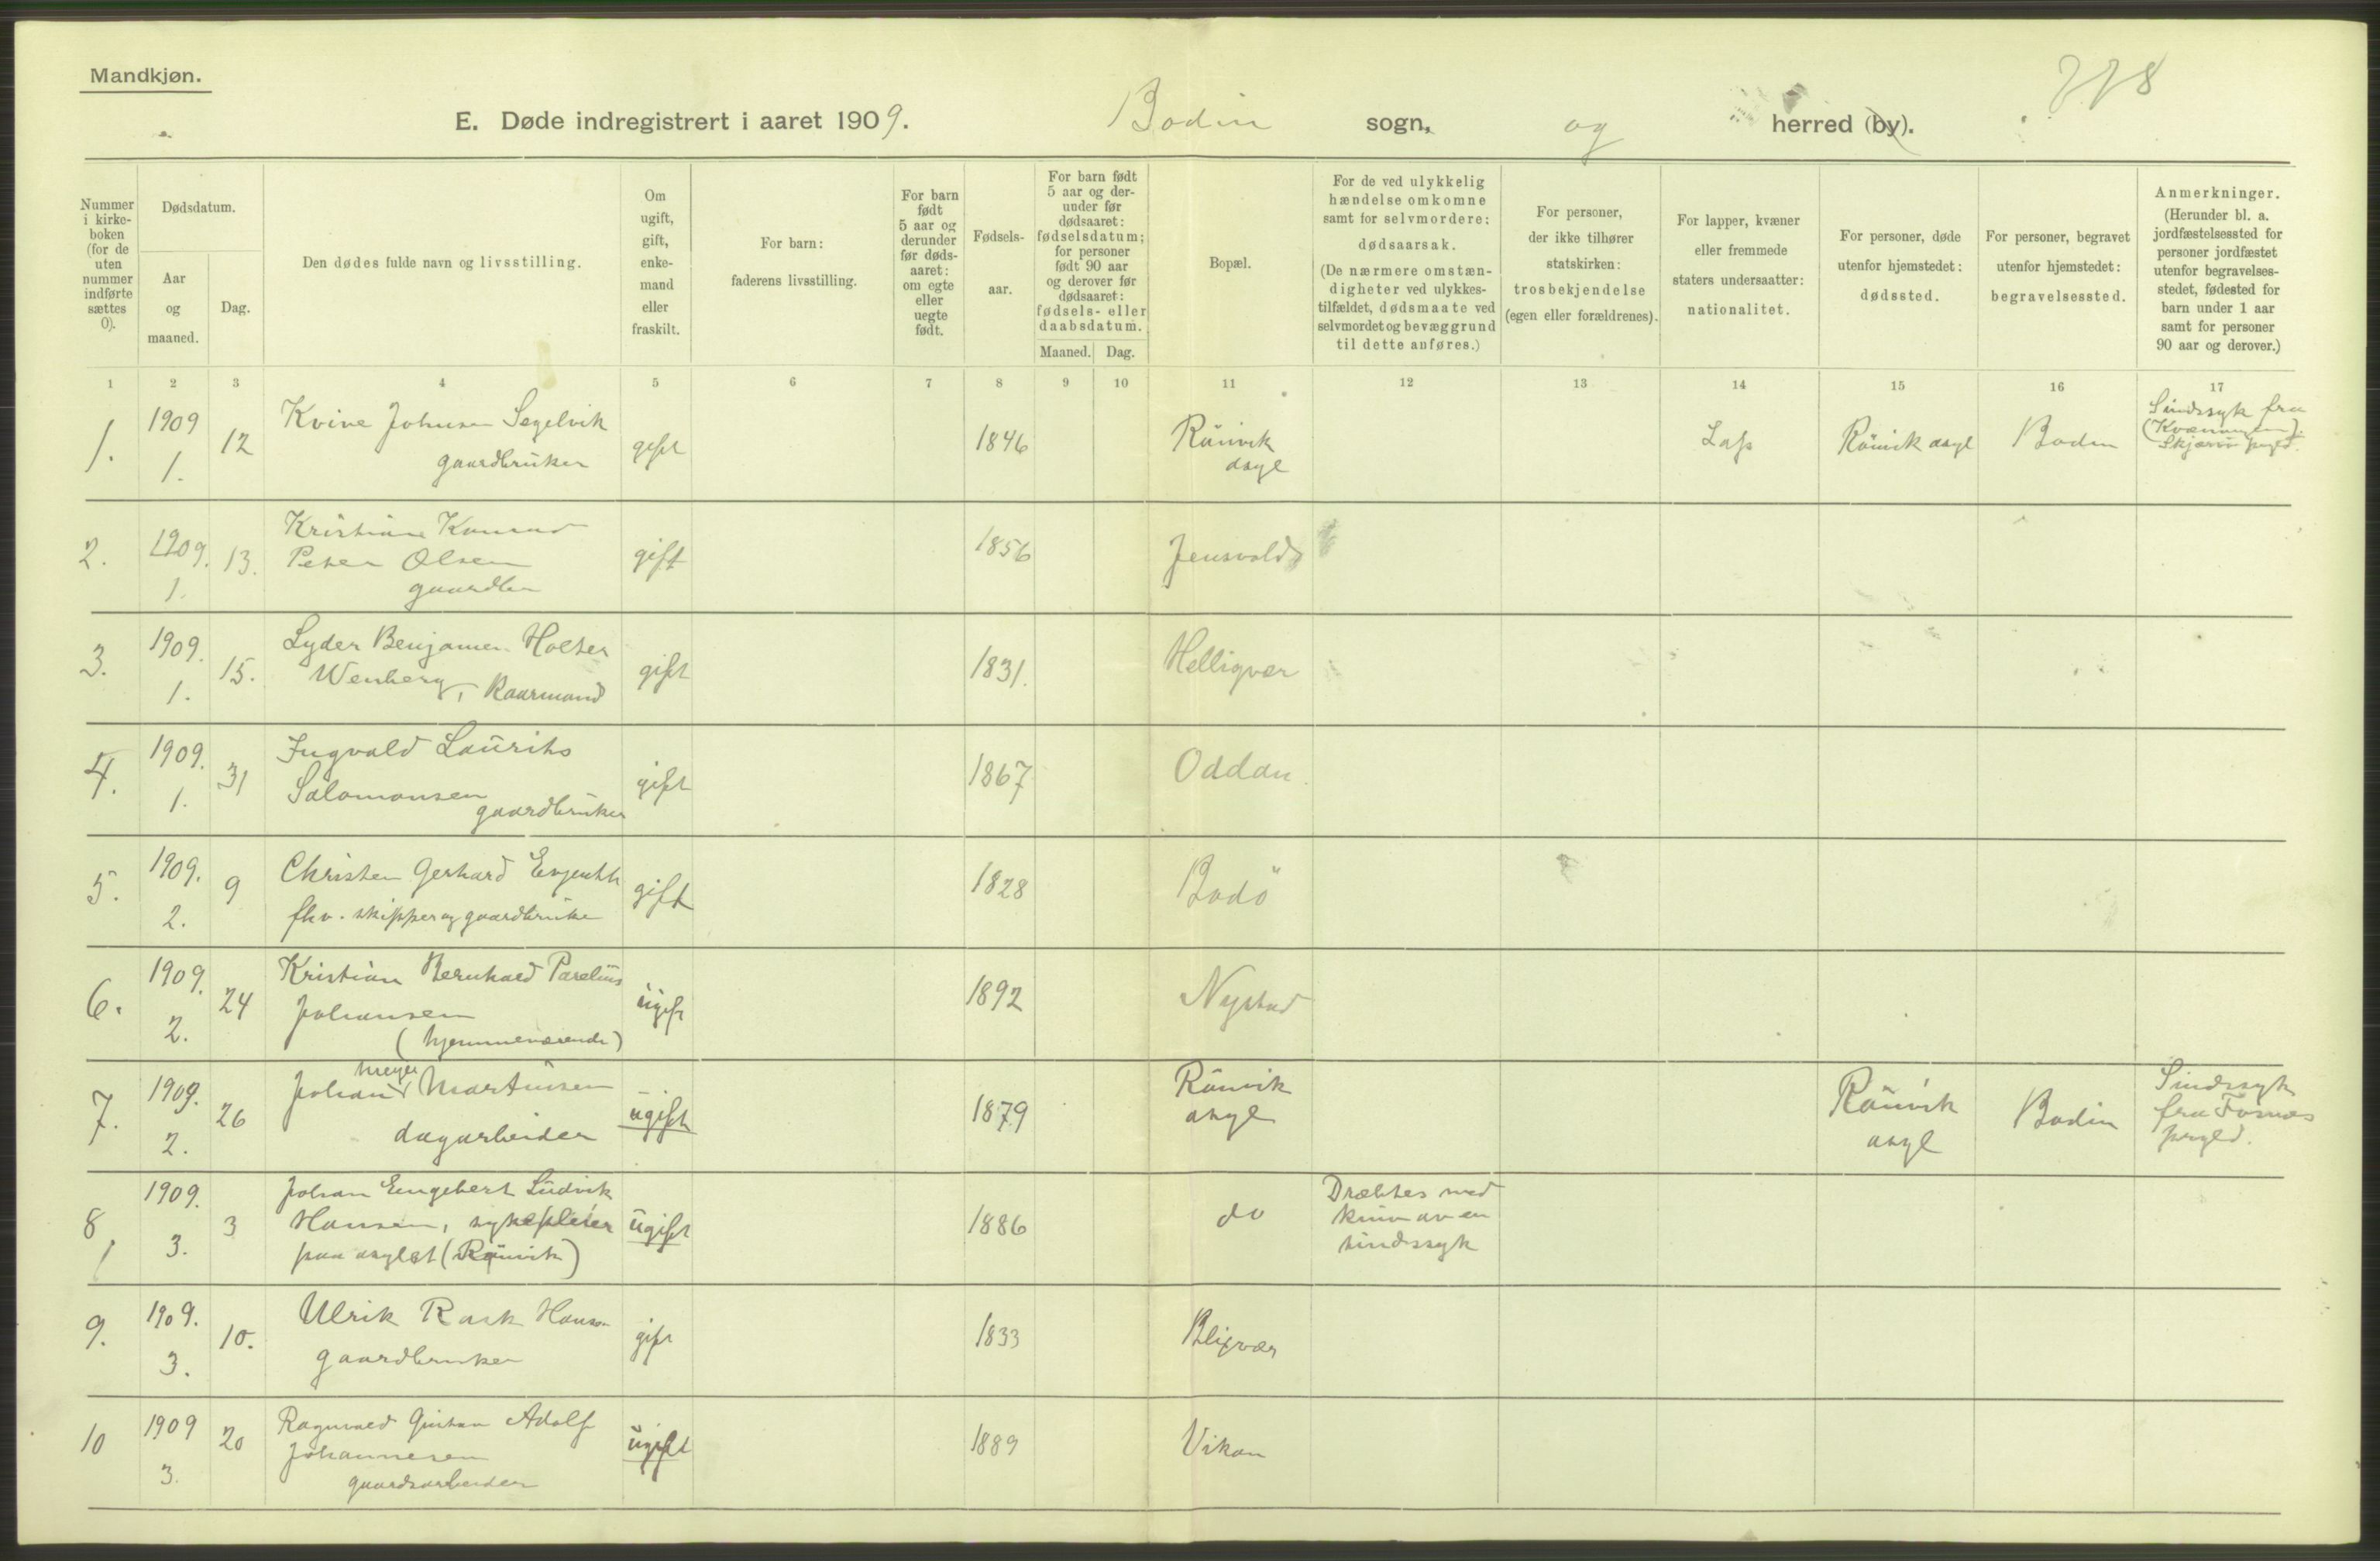 Mandkjøn.
778
E. Døde indregistrert i aaret 1909. Bodin sogn, og herred (by).
Nummer i kirkeboken (for de uten nummer indførte sættes 0).
Dødsdatum.
Aar og maaned.
Dag.
Den dødes fulde navn og livsstilling.
Om ugift, gift, enkemand eller fraskilt.
For barn: faderens livsstilling.
For barn født 5 aar og derunder før dødsaaret: om egte eller uegte født.
Fødselsaar.
For barn født 5 aar og derunder før dødsaaret: fødselsdatum; for personer født 90 aar og derover før dødsaaret: fødsels- eller daabsdatum.
Maaned. Dag.
Bopæl.
For de ved ulykkelig hændelse omkomne samt for selvmordere: dødsaarsak. (De nærmere omstændigheter ved ulykkestilfældet, dødsmaate ved selvmordet og bevæggrund til dette anføres.)
For personer, der ikke tilhører statskirken: trosbekjendelse (egen eller forældrenes).
For lapper, kvæner eller fremmede staters undersaatter: nationalitet.
For personer, døde utenfor hjemstedet: dødssted.
For personer, begravet utenfor hjemstedet: begravelsessted.
Anmerkninger. (Herunder bl. a. jordfæstelsessted for personer jordfæstet utenfor begravelsesstedet, fødested for barn under 1 aar samt for personer 90 aar og derover.)
1 2 3 4 5 6 7 8 9 10 11 12 13 14 15 16 17
1. 1909 1. 12 Kvive Johnsen Segelvik gaardbruker gift 1846 Rönvik asyl Lap Rönvik asyl Bodin Sindssyk fra (Kvænangen). Skjærvø prgld.
2. 1909. 1. 13. Kristian Konrad Peter Olsen gaardbr gift 1856 Jensvold
3. 1909. 1. 15. Lyder Benjamin Holter Wenberg, Kaarmand gift 1831. Helligvær
4. 1909. 1. 31 Ingvald Laurits Salomonsen gaardbruker gift 1867 Oddan.
5. 1909. 2. 9 Christen Gerhard Evjenth fhv. skipper og gaardbruke gift 1828 Bodö
6. 1909. 2. 24 Kristian Bernhard Parelius Johansen (hjemmeværende) ugift 1892 Nystad
7. 1909. 2. 26 Johan Meyer Martinsen dagarbeider ugift 1879 Rönvik asyl Rönvik asyl Bodin Sindssyk fra Fosnes prgld.
8 1909. 3. 3 Johan Engebert Ludvik Hansen, sykepleier paa asylet (Rönvik) ugift 1886 do Dræbtes med kniv av en sindssyk
9. 1909. 3. 10. Ulrik Rask Hansen gaardbruker gift 1833 Bligvær
10 1909 3. 20 Ragnvald Gustav Adolf Johannesen gaardsarbeider ugift 1889 Vikan